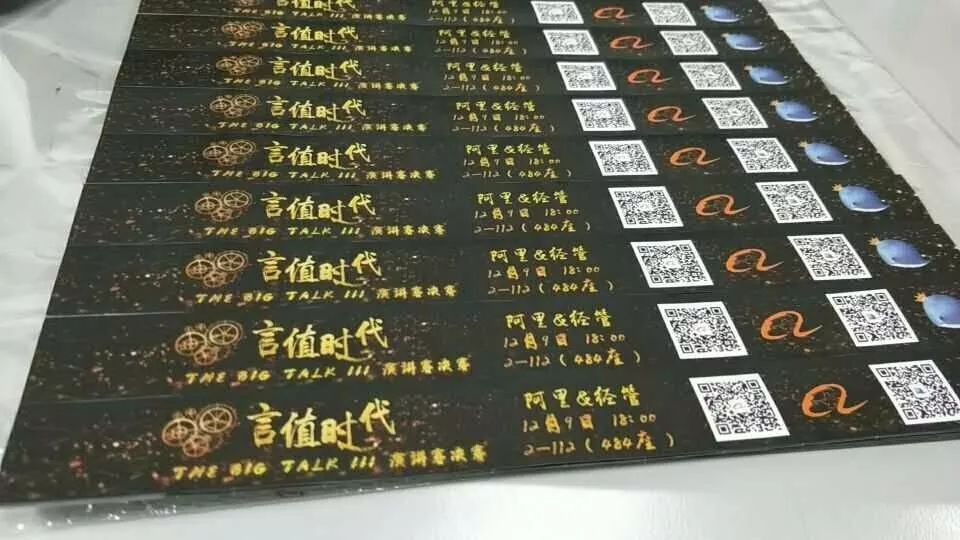 言值时代
THE BIG TALK III 演讲赛决赛
阿里&经管
12月9日 18:00
2-112(484座)
言值时代
THE BIG TALK III 演讲赛决赛
阿里&经管
12月9日 18:00
2-112(484座)
言值时代
THE BIG TALK III 演讲赛决赛
阿里&经管
12月9日 18:00
2-112(484座)
言值时代
THE BIG TALK III 演讲赛决赛
阿里&经管
12月9日 18:00
2-112(484座)
言值时代
THE BIG TALK III 演讲赛决赛
阿里&经管
12月9日 18:00
2-112(484座)
言值时代
THE BIG TALK III 演讲赛决赛
阿里&经管
12月9日 18:00
2-112(484座)
言值时代
THE BIG TALK III 演讲赛决赛
阿里&经管
12月9日 18:00
2-112(484座)
言值时代
THE BIG TALK III 演讲赛决赛
阿里&经管
12月9日 18:00
2-112(484座)
言值时代
THE BIG TALK III 演讲赛决赛
阿里&经管
12月9日 18:00
2-112(484座)